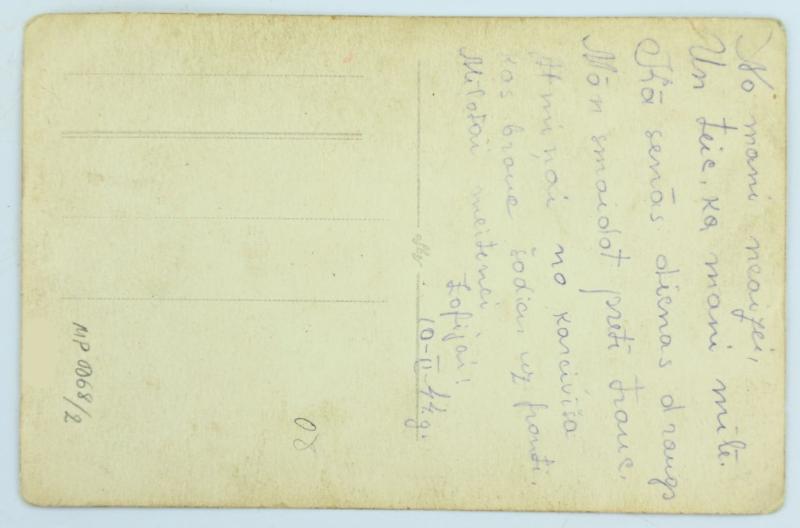 No mani neaizej,
Un teic, ka mani mīlē.
Kā senās dienas draugs
Man smaidot pretī trauc.
Atmiņai no karavīra
kas brauc šodien uz fronti.
Mīļotai meitenei
Zofijai!
10-II-44.g.
MP 0068/2